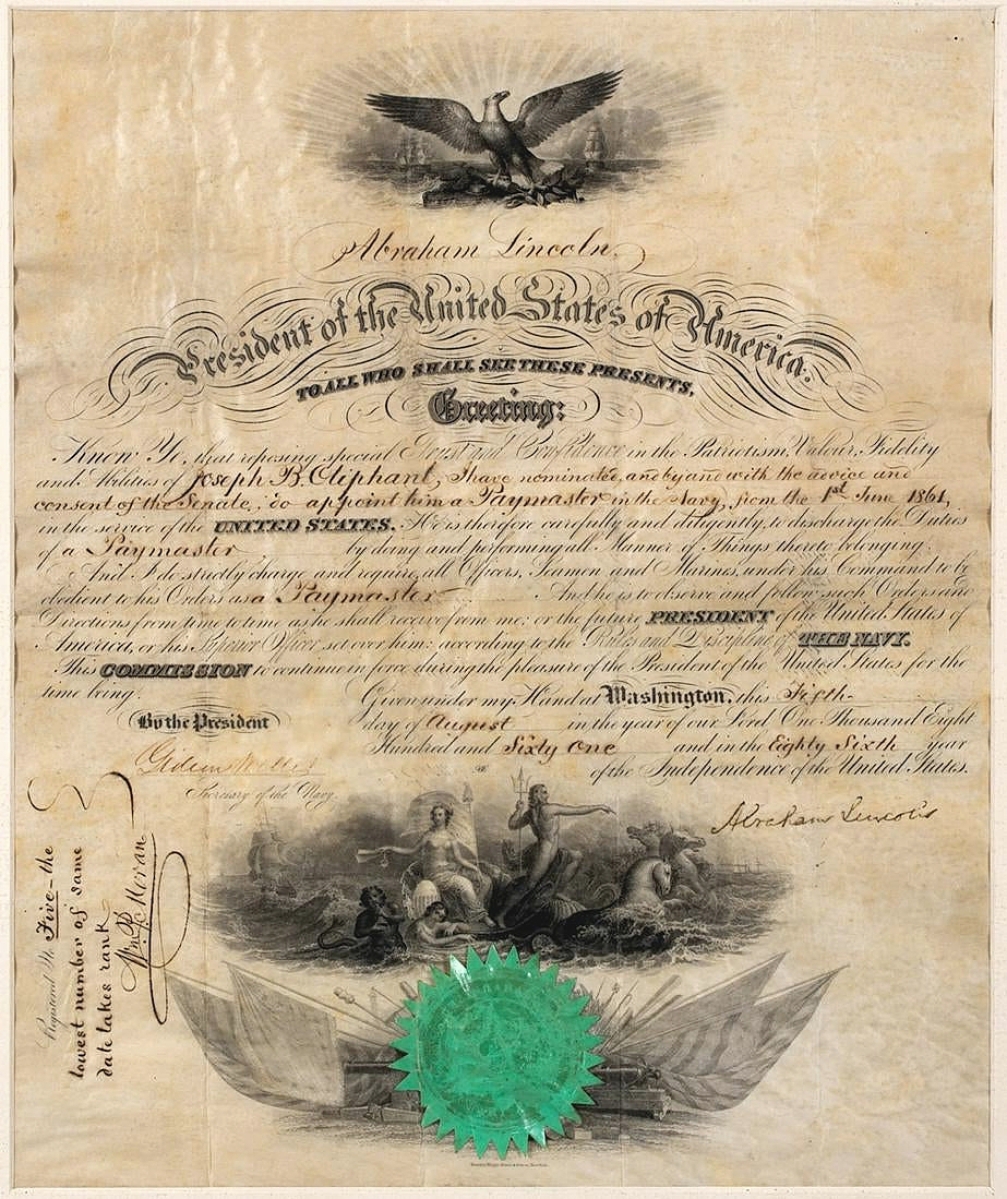 Abraham Lincoln,
President of the United States of America.
TO ALL WHO SHALL SEE THESE PRESENTS,
Greeting:
Know Ye, that reposing special Trust and Confidence in the Patriotism, Valour, Fidelity
and Abilities of Joseph B. Oliphant, I have nominated, and by and with the advice and
consent of the Senate, do appoint him a Paymaster in the Navy, from the 1st June 1861,
in the service of the UNITED STATES. He is therefore carefully and diligently, to discharge the Duties
of a Paymaster by doing and performing all Manner of Things thereto belonging.
And I do strictly charge and require, all Officers, Seamen and Marines, under his Command to be
obedient to his Orders as a Paymaster And he is to observe and follow such Orders and
Directions from time to time as he shall receive from me; or the future PRESIDENT of the United States of
America, or his Superior Officer set over him; according to the Rules and Discipline of THE NAVY.
This COMMISSION to continue in force during the pleasure of the President of the United States for the
time being.
Given under my Hand at Washington, this Fifth
day of August in the year of our Lord One Thousand Eight
Hundred and Sixty One and in the Eighty Sixth year
of the Independence of the United States.
By the President
Gideon Welles
Secretary of the Navy.
Abraham Lincoln
Registered No Five - the
lowest number of same
date takes rank
Wm P. Moran